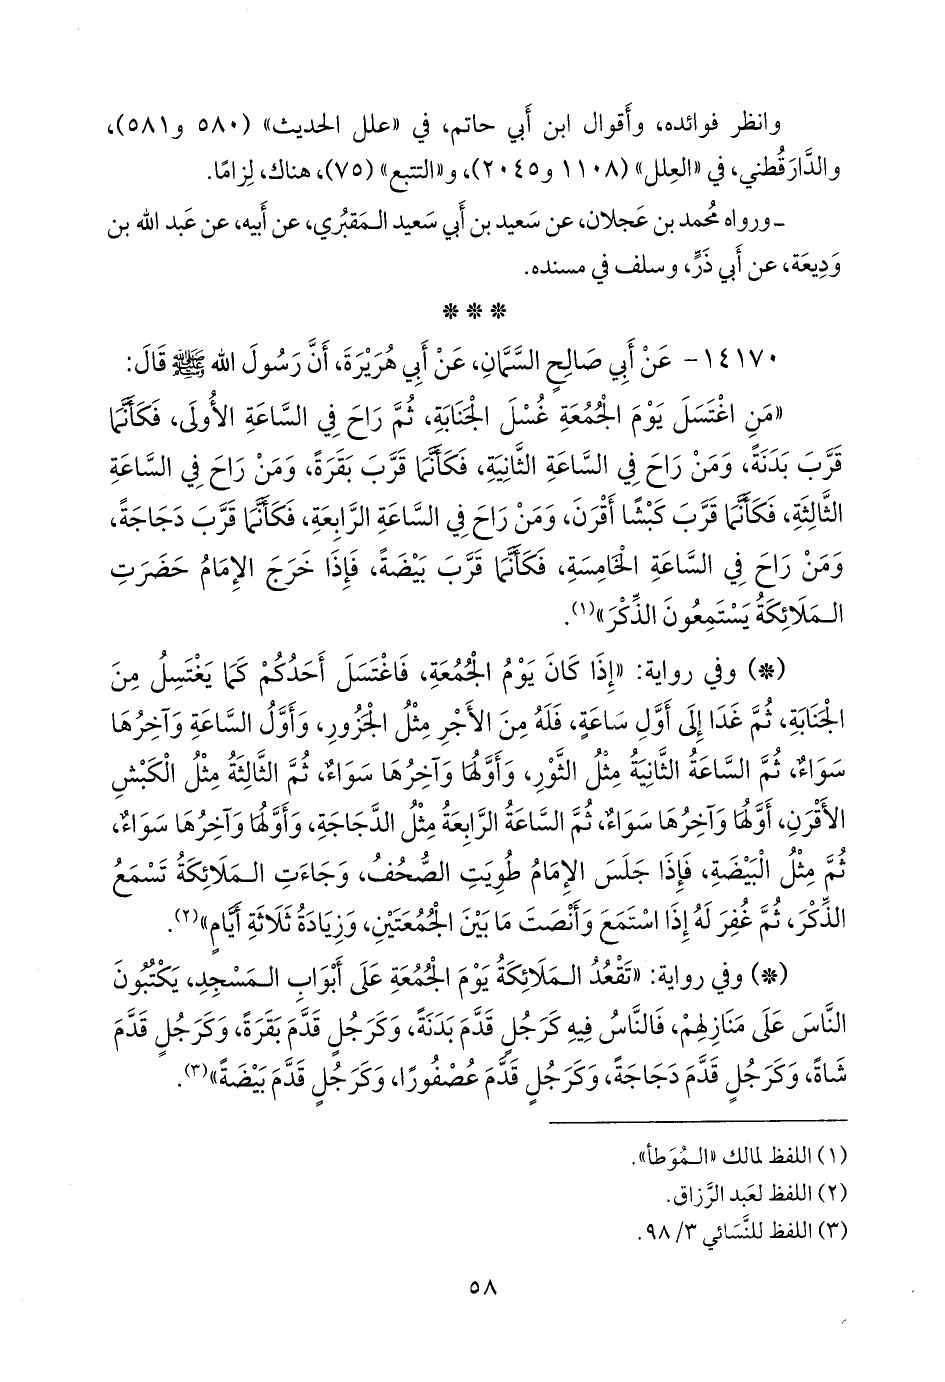 وانظر فوائده، وأَقوال ابن أَبي حاتم، في «علل الحديث» (٥٨٠ و٥٨١)،
والدَّارَقُطني، في «العِلل» (١١٠٨ و٢٠٤٥)، و«التتبع» (٧٥)، هناك، لِزامًا.
ـ ورواه مُحمد بن عَجلان، عن سَعيد بن أَبي سَعيد الـمَقبُري، عن أَبيه، عن عَبد الله بن
وَدِيعَة، عن أَبي ذَرٍّ، وسلف في مسنده.
* * *
١٤١٧٠- عَنْ أَبِي صَالِحٍ السَّمَّانِ، عَنْ أَبِي هُرَيْرَةَ، أَنَّ رَسُولَ الله ﷺ قَالَ:
«مَنِ اغْتَسَلَ يَوْمَ الْجُمُعَةِ غُسْلَ الْجَنَابَةِ، ثُمَّ رَاحَ فِي السَّاعَةِ الأُولَى، فَكَأَنَّمَا
قَرَّبَ بَدَنَةً، وَمَنْ رَاحَ فِي السَّاعَةِ الثَّانِيَةِ، فَكَأَنَّمَا قَرَّبَ بَقَرَةً، وَمَنْ رَاحَ فِي السَّاعَةِ
الثَّالِثَةِ، فَكَأَنَّمَا قَرَّبَ كَبْشًا أَقْرَنَ، وَمَنْ رَاحَ فِي السَّاعَةِ الرَّابِعَةِ، فَكَأَنَّمَا قَرَّبَ دَجَاجَةً،
وَمَنْ رَاحَ فِي السَّاعَةِ الْخَامِسَةِ، فَكَأَنَّمَا قَرَّبَ بَيْضَةً، فَإِذَا خَرَجَ الإِمَامُ حَضَرَتِ
الـمَلَائِكَةُ يَسْتَمِعُونَ الذِّكْرَ»(١).
(*) وفي رواية: «إِذَا كَانَ يَوْمُ الْجُمُعَةِ، فَاغْتَسَلَ أَحَدُكُمْ كَمَا يَغْتَسِلُ مِنَ
الْجَنَابَةِ، ثُمَّ غَدَا إِلَى أَوَّلِ سَاعَةٍ، فَلَهُ مِنَ الأَجْرِ مِثْلُ الْجَزُورِ، وَأَوَّلُ السَّاعَةِ وَآخِرُهَا
سَوَاءٌ، ثُمَّ السَّاعَةُ الثَّانِيَةُ مِثْلُ الثَّوْرِ، وَأَوَّلُهَا وَآخِرُهَا سَوَاءٌ، ثُمَّ الثَّالِثَةُ مِثْلُ الْكَبْشِ
الأَقْرَنِ، أَوَّلُهَا وَآخِرُهَا سَوَاءٌ، ثُمَّ السَّاعَةُ الرَّابِعَةُ مِثْلُ الدَّجَاجَةِ، وَأَوَّلُهَا وَآخِرُهَا سَوَاءٌ،
ثُمَّ مِثْلُ الْبَيْضَةِ، فَإِذَا جَلَسَ الإِمَامُ طُوِيَتِ الصُّحُفُ، وَجَاءَتِ الـمَلَائِكَةُ تَسْمَعُ
الذِّكْرَ، ثُمَّ غُفِرَ لَهُ إِذَا اسْتَمَعَ وَأَنْصَتَ مَا بَيْنَ الْجُمُعَتَيْنِ، وَزِيَادَةُ ثَلَاثَةِ أَيَّامٍ»(٢).
(*) وفي رواية: «تَقْعُدُ الـمَلَائِكَةُ يَوْمَ الْجُمُعَةِ عَلَى أَبْوَابِ الـمَسْجِدِ، يَكْتُبُونَ
النَّاسَ عَلَى مَنَازِلِهِمْ، فَالنَّاسُ فِيهِ كَرَجُلٍ قَدَّمَ بَدَنَةً، وَكَرَجُلٍ قَدَّمَ بَقَرَةً، وَكَرَجُلٍ قَدَّمَ
شَاةً، وَكَرَجُلٍ قَدَّمَ دَجَاجَةً، وَكَرَجُلٍ قَدَّمَ عُصْفُورًا، وَكَرَجُلٍ قَدَّمَ بَيْضَةً»(٣).
(١) اللفظ لمالك «الـمُوَطأ».
(٢) اللفظ لعَبد الرَّزاق.
(٣) اللفظ للنَّسَائي ٣/ ٩٨.
٥٨